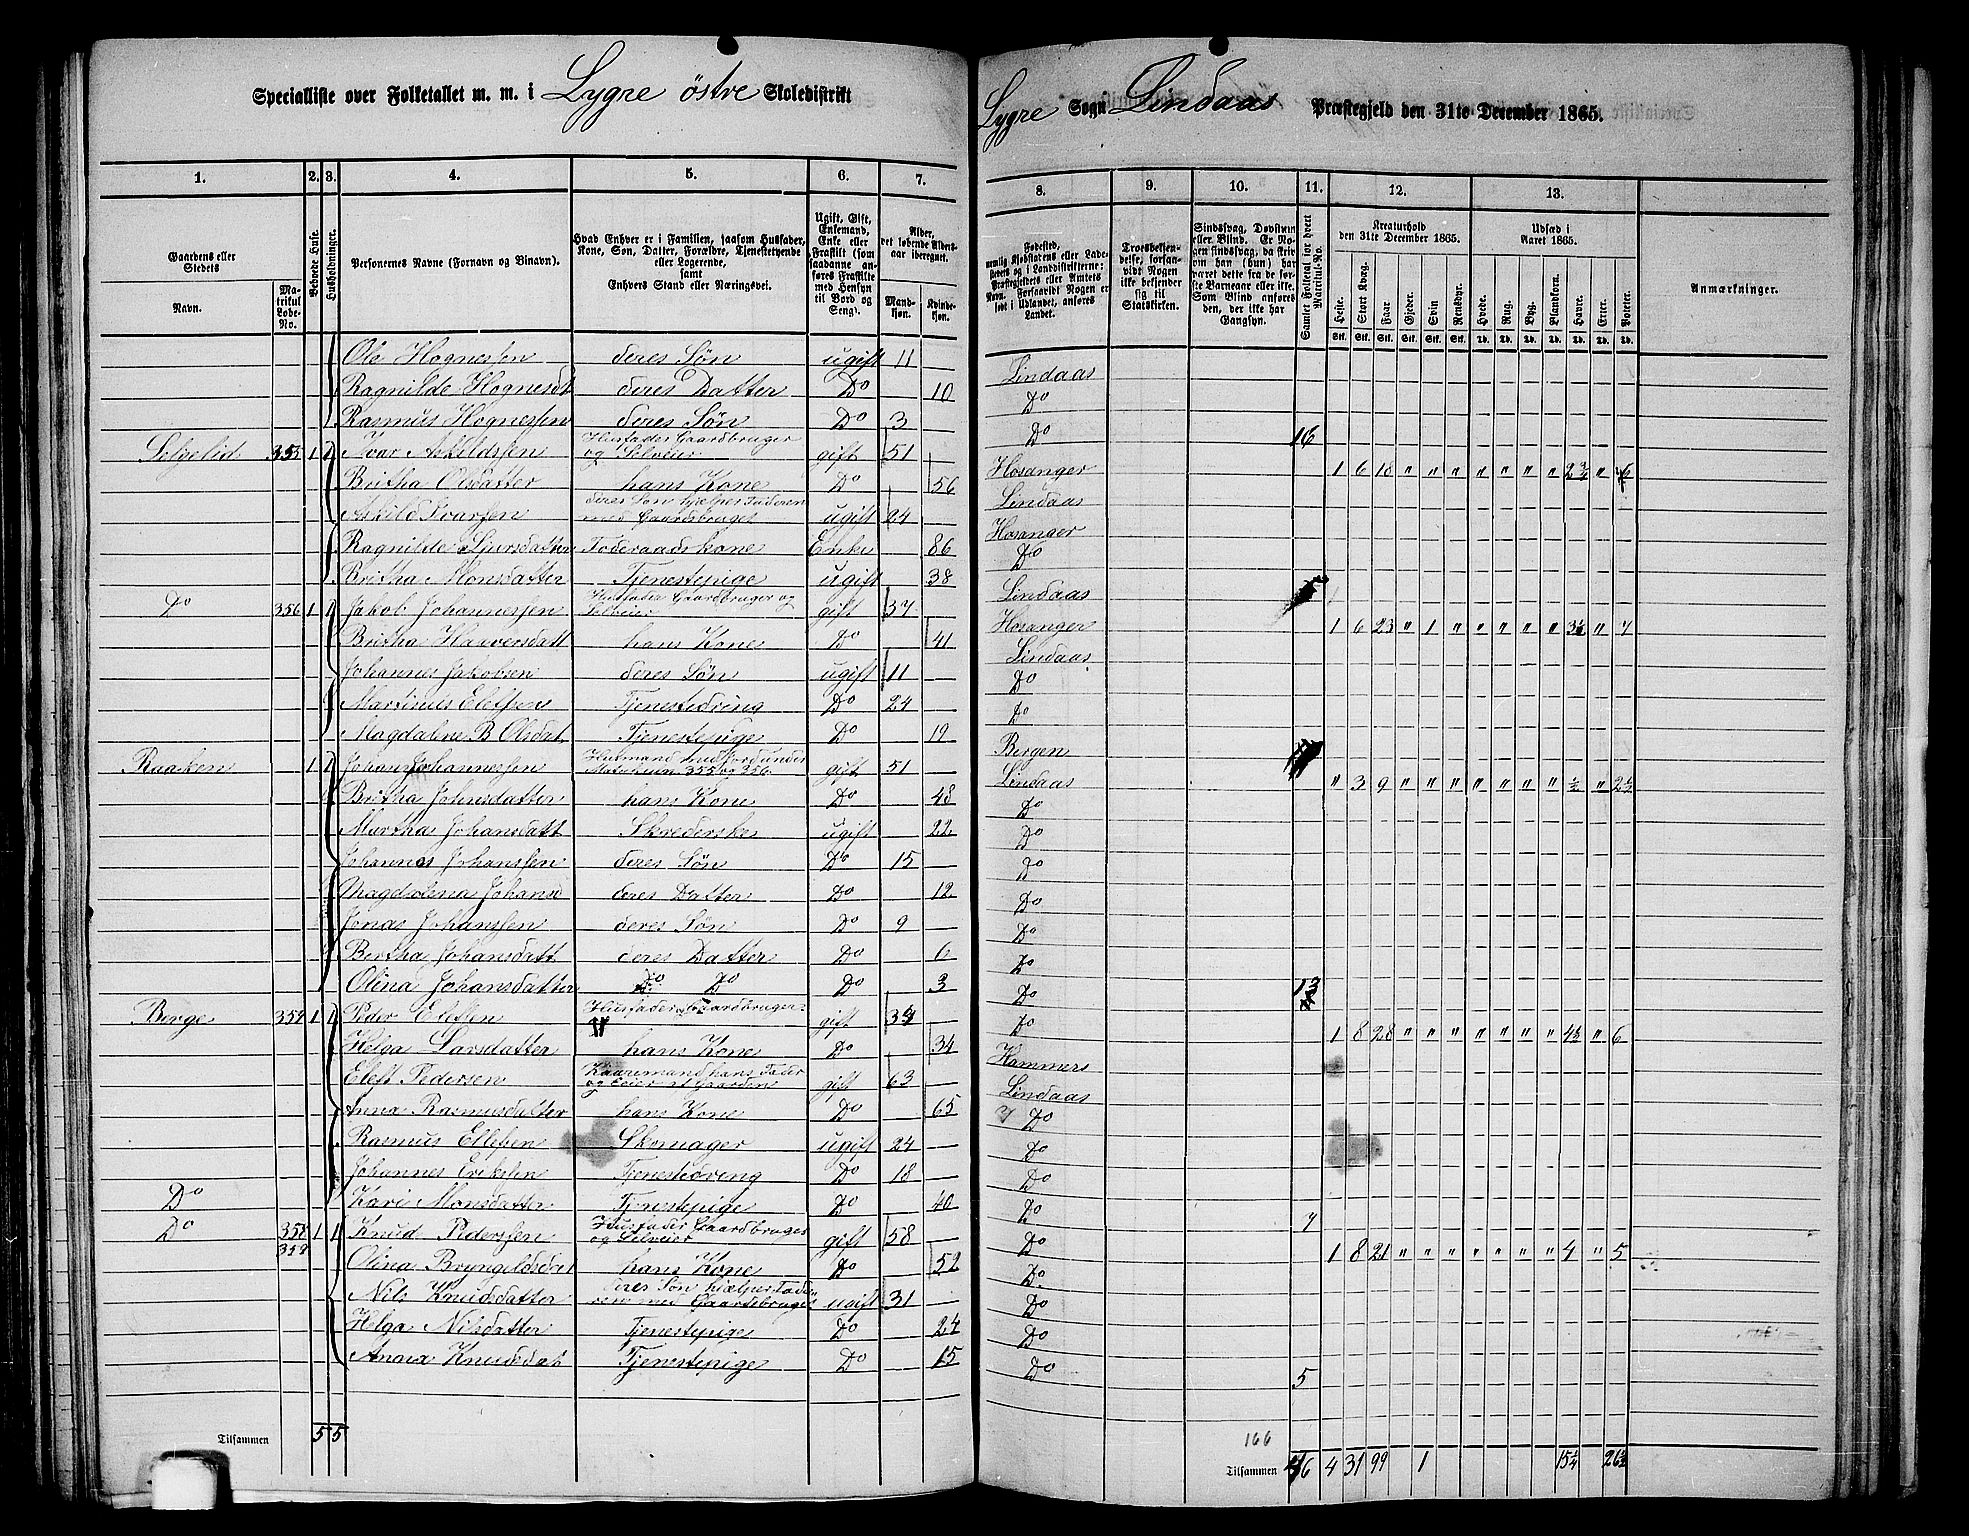 Specialliste over Folketallet m. m. i Lygre östre Skoledistrikt
Lygre Sogn Lindaas Præstegjeld den 31te December 1865.
1. 2. 3. 4. 5. 6. 7.
8. 9. 10. 11. 12. 13.
Gaardens eller Stedets
Navn.
Matrikul Løbe-No.
Bebyede Huse.
Husholdninger.
Personernes Navne (Fornavn og Binavn).
Hvad Enhver er i Familien, saasom Husfader, Kone, Søn, Datter, Forældre, Tjenestetyende eller Logerende, samt Enhvers Stand eller Næringsvei.
Ugift, Gift, Enkemand, Enke eller Fraskilt (som saadanne anføres Fraskilte med Hensyn til Bord og Seng).
Alder, det løbende Aldersaar iberegnet.
Mandkjøn.
Kvindekjøn.
Troesbekjendelse, forsaavidt Nogen ikke bekjender sig til Statskirken.
Samlet Folketal for hvert Matrikul-No.
Kreaturhold den 31te December 1865.
Udsæd i Aaret 1865.
Heste. Stort Kvæg. Faar Gjeder. Svin Rensdyr. Hvede. Rug. Byg. Blandkorn. Havre. Erter. Poteter.
Anmærkninger.
Ole Hognessen deres Søn ugift 11 Lindaas
Ragnilde Hognesdt deres Datter Do 10 Do
Rasmus Hognessen deres Søn Do 3 Do 16
Selgelid 355 1 1 Ivar Askildssen Husfader Gaardbruger og Selveier gift 51 Hosanger 1 6 18 " " " " " " " 2 3/4 " 6
Britha Olsdatter hans Kone Do 56 Lindaas
Askild Ivarsen deres Søn hjælper Faderen med Gaardsbruget ugift 24 Hosanger
Ragnilde Sjursdatter Føderaadskone Enke 86 Do
Britha Monsdatter Tjenestepige ugift 38 Lindaas
Do 356 1 1 Jakob Johannessen Husfader Gaardbruger og Selveier gift 37 Hosanger 1 6 23 " 1 " " " " " " 7
Britha Haaversdatt hans Kone Do 41 Lindaas
Johannes Jakobsen deres Søn ugift 11 Do
Martinus Elefsen Tjenestedreng Do 24 Do
Magdalene B Olsdat Tjenestepige Do 19 Bergen
Raaken 1 1 Johans Johannessen Husmand med Jord under Matrikulno 355 og 356 gift 51 Lindaas " 3 9 " " " " " " " 1/2 " 2 1/2
Britha Johnsdatter hans Kone Do 48 Do
Martha Johansdatt Skrederske ugift 22 Do
Johannes Johanssen deres Søn Do 15 Do
Magdalena Johansd deres Datter Do 12 Do
Jonas Johanssen deres Søn Do 9 Do
Bertha Johansdatt deres Datter Do 6 Do
Olina Johansdatter Do Do Do 3 Do 13
Berge 1 1 Peder Elefsen Husfader Gaardbruger gift Do 1 8 28 " " " " " " " 4 1/2 " 6
Helga Larsdatter hans Kone Do 34 Hammers
Elef Pedersen Kaaremand hans Fader og Eier af Gaarden gift 63 Lindaas
Anna Rasmusdatter hans Kone Do 65 Do
Rasmus Elefsen Skomager ugift 24 Do
Johannes Erikssen Tjenestedreng Do 18 Do
Do Kari Monsdatter Tjenestepige Do 40 Do 7
Do 358 359 1 1 Knud Pederssen Husfader Gaardbruger og Selveier gift 58 Do 1 8 21 " " " " " " " 4 " 5
Olina Bryngeldsdat hans Kone Do 52 Do
Nils Knudsdatter deres Søn hjælper Faderen med Gaardsbruget ugift 31 Do
Helga Nilsdatter Tjenestepige Do 24 Do
Anna Knudsdat Tjenestepige Do 15 Do 5
Tilsammen 5 5
166
Tilsammen 4 31 99 1 15 1/4 26 1/2